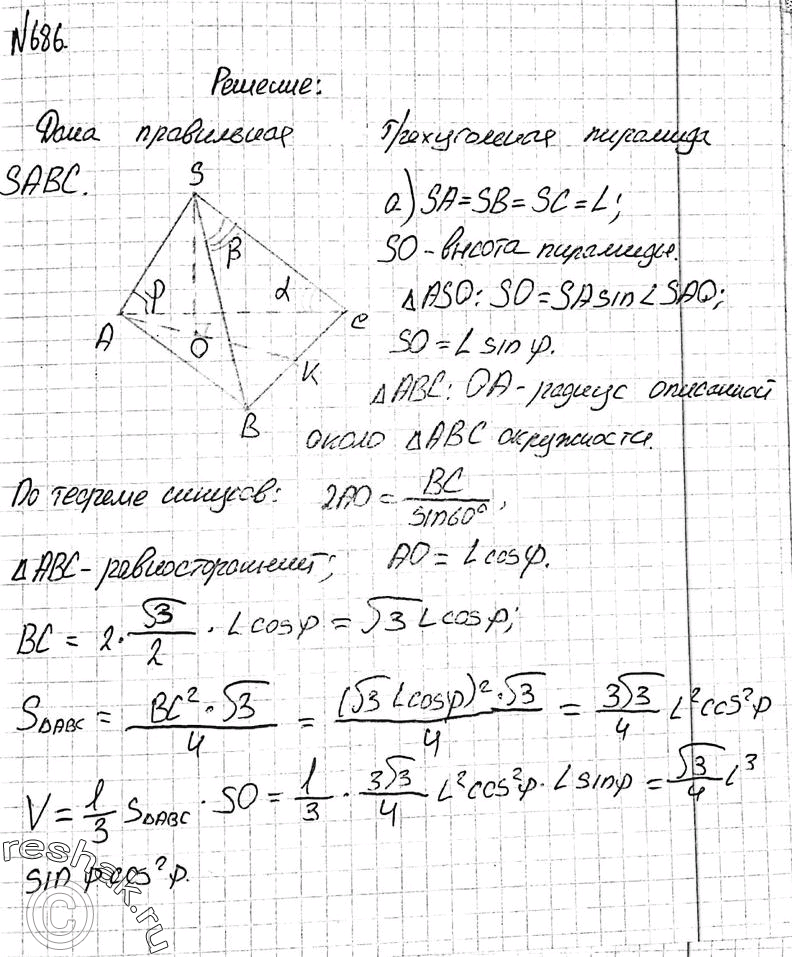 №686.
Решение:
Дана правильная треугольная пирамида
SABC.
S
β
φ
α
A
O
C
K
B
а) SA=SB=SC=L;
SO-высота пирамиды.
△ASO: SO=SA sin∠SAO;
SO=L sin φ.
△ABC: OA-радиус описанной
около △ABC окружности.
По теореме синусов: 2AO = BC/sin60°;
△ABC-равносторонний; AO = L cosφ.
BC = 2·√3/2 · L cosφ = √3 L cosφ;
S△ABC = BC²·√3/4 = (√3 L cosφ)²·√3/4 = 3√3/4 L² cos²φ
V = 1/3 S△ABC · SO = 1/3 · 3√3/4 L² cos²φ · L sinφ = √3/4 L³
sin φ cos²φ.
reshak.ru
©